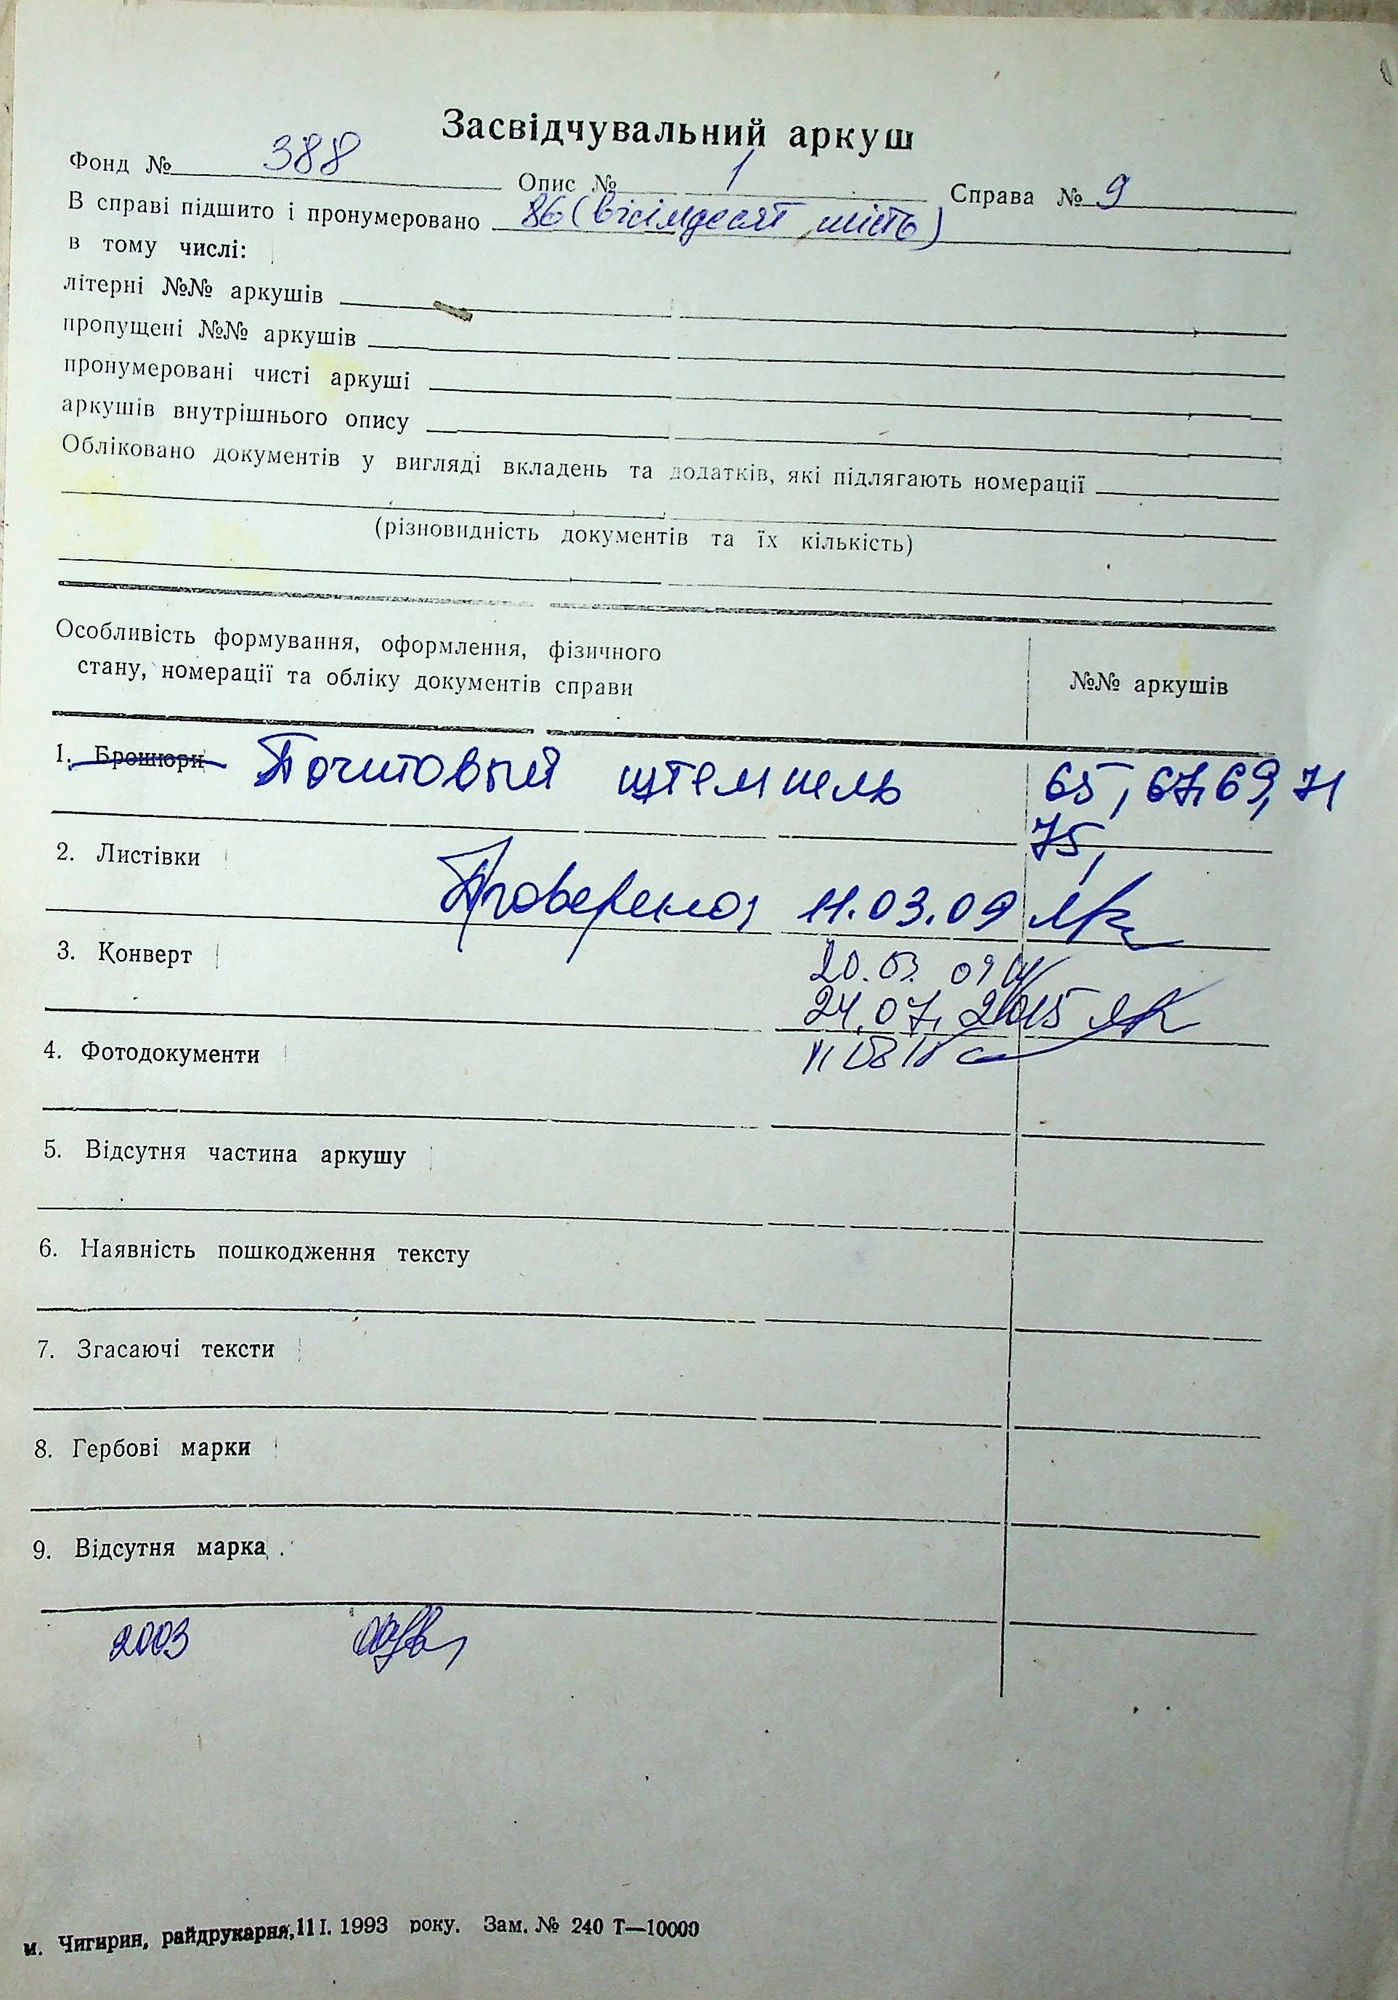 Засвідчувальний аркуш
Фонд № 388 Опис № 1 Справа № 9
В справі підшито і пронумеровано 86 (вісімдесят шість)
в тому числі:
літерні №№ аркушів
пропущені №№ аркушів
пронумеровані чисті аркуші
аркушів внутрішнього опису
Обліковано документів у вигляді вкладень та додатків, які підлягають номерації
(різновидність документів та їх кількість)
Особливість формування, оформлення, фізичного
стану, номерації та обліку документів справи
№№ аркушів
1. Брошюри Почтовый штемпель 65, 67, 69, 71
75,
2. Листівки
Проверено, 11.03.09
3. Конверт
20.03.09
24.07.2015
4. Фотодокументи
5. Відсутня частина аркушу
6. Наявність пошкодження тексту
7. Згасаючі тексти
8. Гербові марки
9. Відсутня марка.
2003
м. Чигирин, райдрукарня, 11 I. 1993 року. Зам. № 240 Т—10000